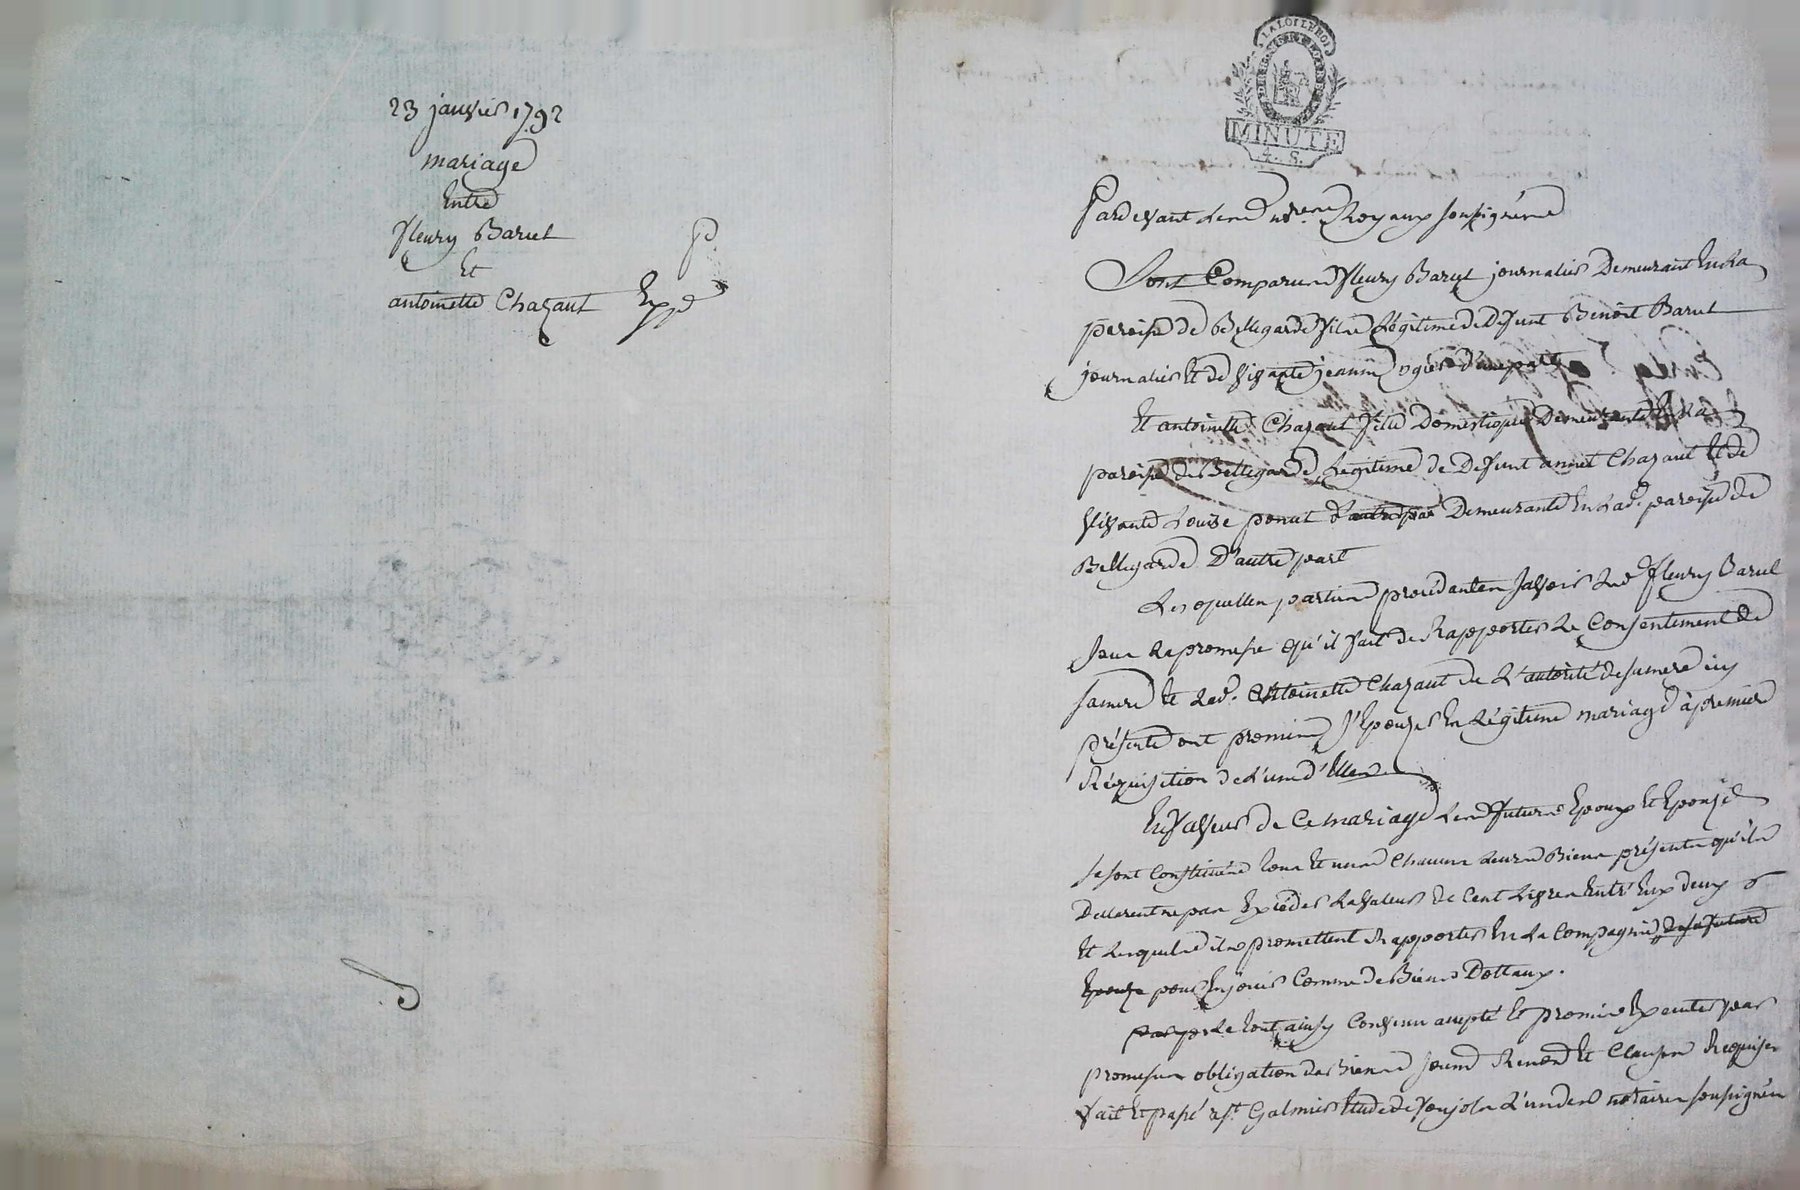 23 janvier 1792
mariage
Entre
fleury Barut
Et
antoinette Chazaut Expé
LA LOI LE ROI
MINUTE
4. S.
Pardevant Les nres Royaux soussignés
Sont Comparus fleury Barut journalier Demeurant En La
paroisse de Bellegarde fils Légitime de Defunt Benoit Barut
journalier Et de vivante jeanne ogier d'une part
Et antoinette Chazaut fille Domestique Demeurante En La
paroisse de Bellegarde Légitime de Defunt annet Chazaut Et de
vivante Louise ponut d'autre part Demeurante En Lad. paroisse de
Bellegarde D'autre part
Lesquelles parties procédantes savoir Led. fleury Barut
sous La promesse qu'il fait de Rapporter Le Consentement de
sa mere Et Lad. antoinette Chazaut de L'autorité de sa mere icy
présente ont promis s'Epouser En Légitime mariage à premiere
Réquisition de L'une d'Elles
En faveur de Ce mariage Les futurs Epoux Et Epouse
se sont Constitués tous Et uns Chacuns Leurs Biens présents qu'ils
Déclarent ne pas Excéder La valeur de Cent Livres Entr'Eux deux
Et Lesquels ils promettent Rapporter En La Compagnie de sa future
Epouse pour En jouir Comme de Biens Dottaux.
Le tout ainsy Convenu accepté Et promis Executer par
promesses obligation de Biens soumis Renon. Et Clauses Requises
fait Et passé a St. Galmier Etude de Ponjols L'un des notaires soussignés